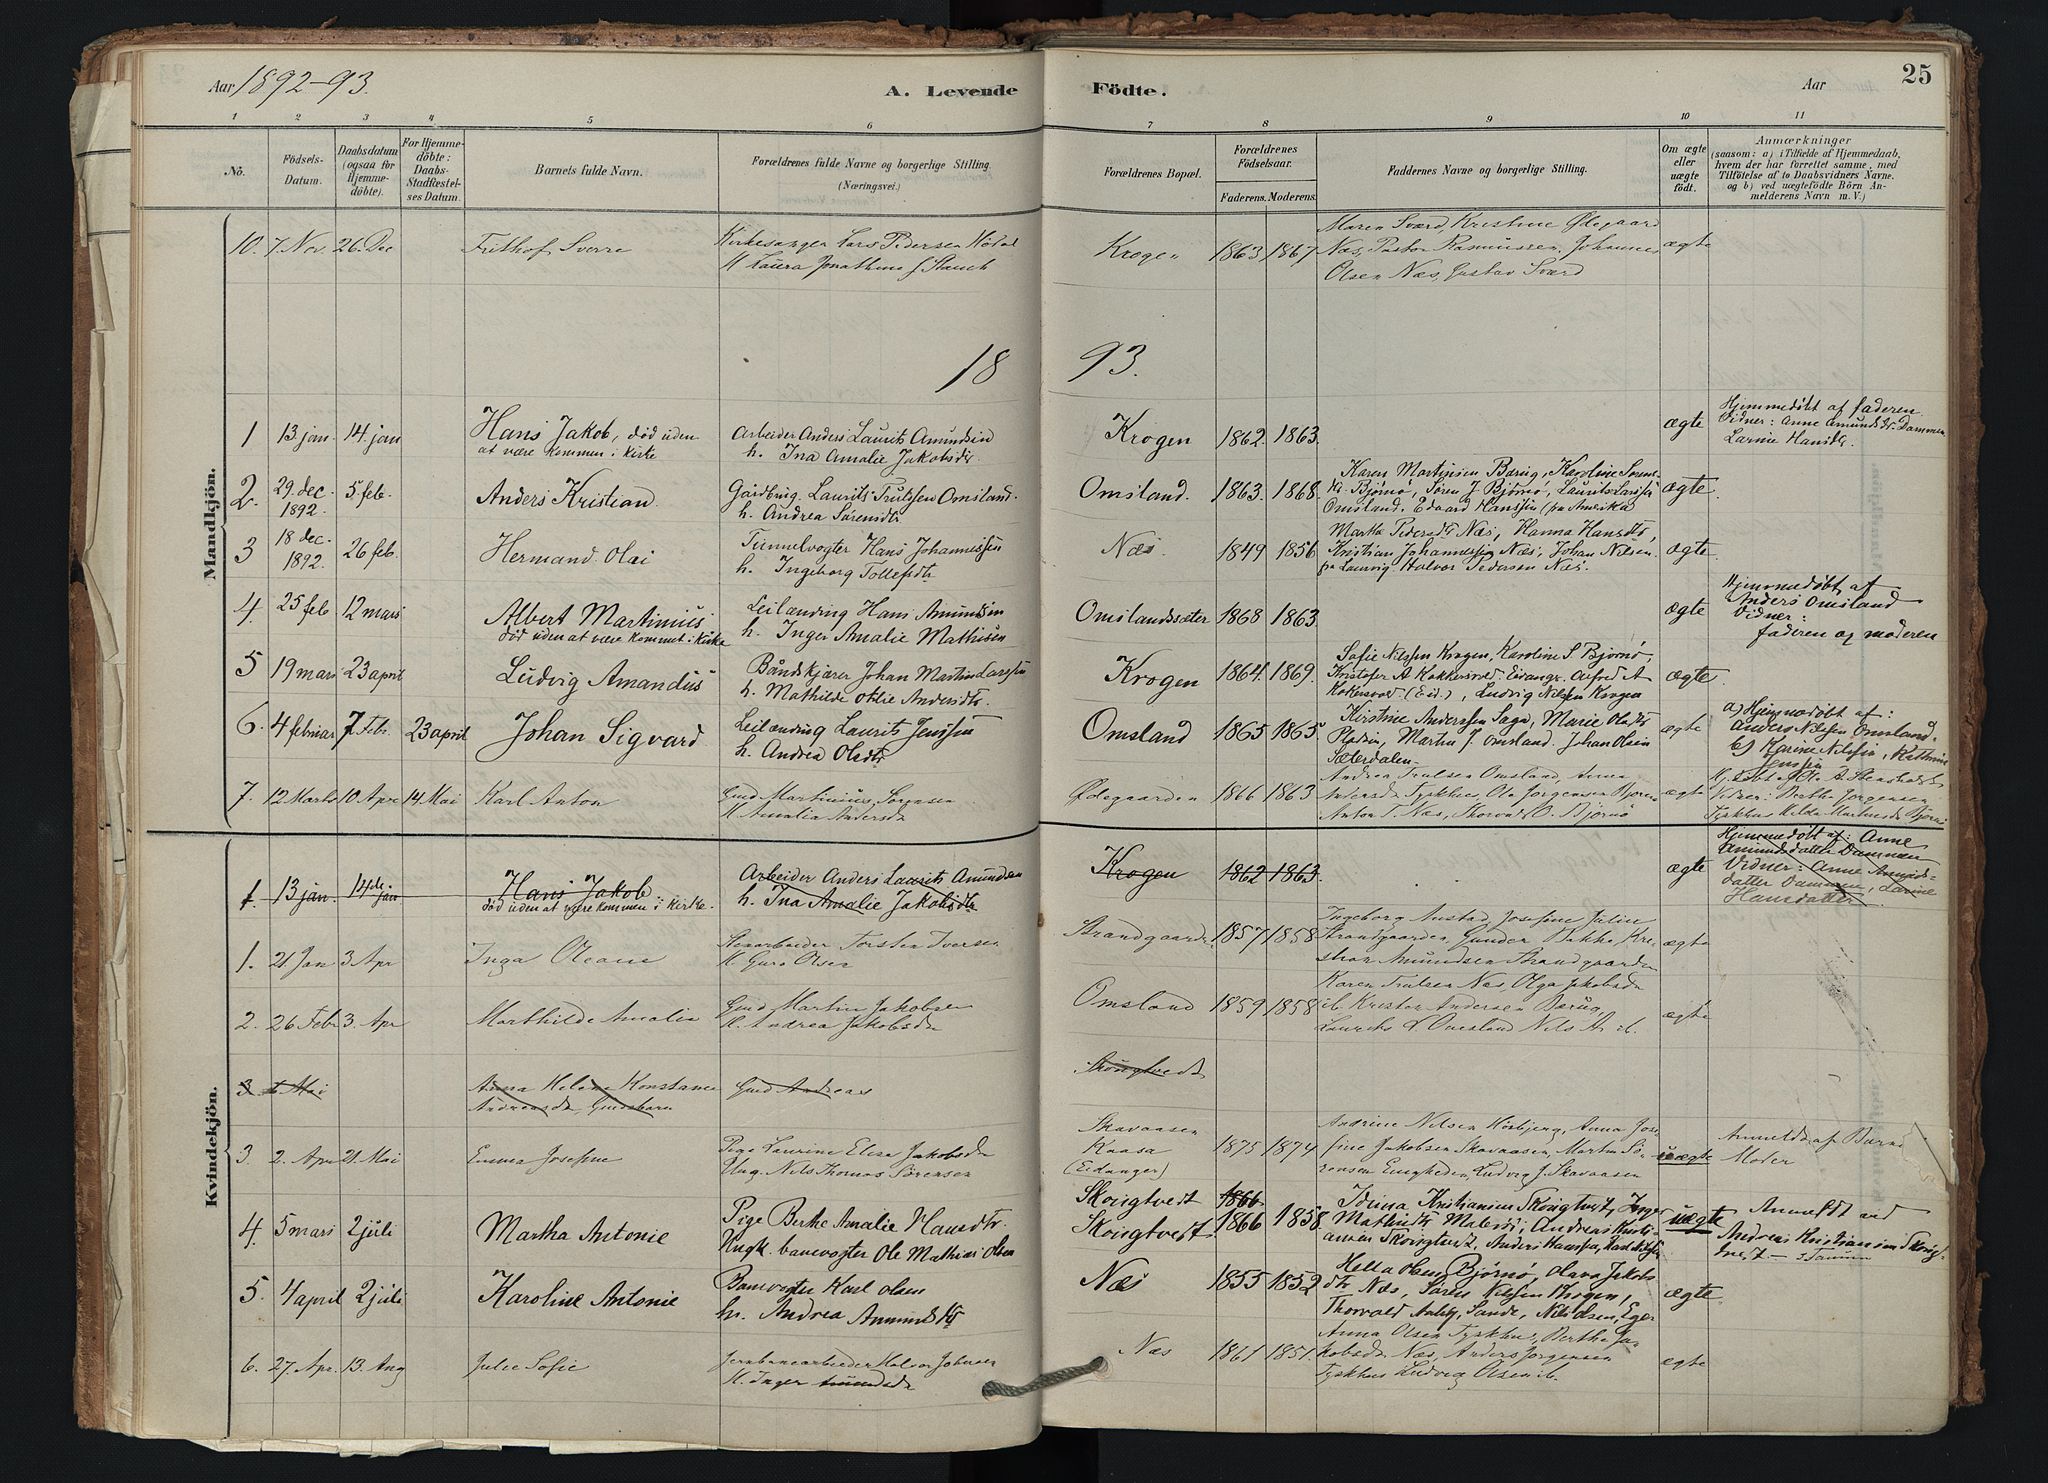 Aar 1892-93.
A. Levende Födte.
Aar
25
1 2 3 4 5 6 7 8 9 10 11
Nö.
Födsels-Datum.
Daabsdatum (ogsaa for Hjemme-döbte).
For Hjemme-döbte: Daabs-Stadfæstel-ses Datum.
Barnets fulde Navn.
Forældrenes fulde Navne og borgerlige Stilling. (Næringsvei.)
Forældrenes Bopæl.
Forældrenes Födselsaar.
Faderens. Moderens.
Faddernes Navne og borgerlige Stilling.
Om ægte eller uægte födt.
Anmærkninger
(saasom: a) i Tilfælde af Hjemmedaab,
hvem der har forrettet samme, med
Tilföielse af to Daabsvidners Navne.
og b) ved uægtefödte Börn An-
melderens Navn m. V.)
Mandkjön.
10. 7 Nov. 26. Dec Frithof Sverre Kirkesanger Lars Pedersen
H. Laura Jonathine
Krogen 1863 1867 Maren Sværd, Kristine Ølegaard
Næs, Pastor Rasmussen, Johannes
Olsen Næs, Gustav Sværd
ægte
18 93.
1 13 jan 14. jan Hans Jakob, død uden
at være kommen i kirke
Arbeider Anders Laurits Amundsen
h. Ina Amalie Jakobsdtr.
Krogen 1862. 1863. ægte
Hjemmedøbt af faderen
Vidner: Anne Amundsdtr. Dammen
Larine Hansdtr.
2. 29. dec. 1892. 5 feb. Anders Kristian
Gårdbrug. Laurits Trulssen Omsland.
h. Andrea Sørensdtr
Omsland. 1863. 1868. Karen Martinsen Barug, Karoline Sørens-
dtr Bjørnø, Søren J. Bjørnø, Laurits Larssen
Omsland. Edvard Hanssen (fra Amerika)
ægte.
3 18 dec. 1892. 26 feb. Hermand Olai
Tunnelvogter Hans Johannessen
h. Ingeborg Tollefsdtr
Næs. 1849 1856 Martha Pedersdtr Næs, Hanna Hansdtr,
Kristian Johannessen Næs, Johan Nilsen
fra Laurvig. Halvor Pedersen Næs.
ægte.
4. 25 feb 12 mars Albert Martinius
død uden at være kommet i kirke
Leilænding Hans Amundsen
h. Inger Amalie Mathisen
Omslandssæter 1868 1863 ægte
Hjemmedøbt af
Anders Omsland
Vidner:
faderen og moderen
5 19 mars 23 april Ludvig Amandus
Båndskjærer Johan Martin Larssen
h. Mathilde Otilie Andersdtr.
Krogen 1864. 1869. Sofie Nilssen Krogen, Karoline S. Bjørnø,
Kristofer A Kokkersvold Eidanger. Alfred A
Kokersvold (Eid.), Ludvig Nilsen Krogen
ægte
6. 4 februar 7 Febr. 23 april Johan Sigvard
Leilænding Laurits Jenssen
h. Andrea Olsdtr
Omsland 1865 1865 Kirstine Anderssen Saga, Marie Olsdtr
Martin J. Omsland. Johan Olsen
Sæterdalen.
ægte
a) Hjemmedøbt af:
Anders Nilsen Omsland.
b) Karine Nilssen, Kathrine
Jenssen
7. 12 Marts 10 Apr 14 Mai Karl Anton
Gmd Martinius Sørensen
H. Amalia Andersdr
Ølegaarden 1866 1863 Andrea Trulsen Omsland, Anna
Andersdr Tyskhus, Ole Jørgensen Bjørnø
Anton S. Næs, Thorvald O. Bjørnø
ægte
Vidner: Berthe Jørgensen
Tyskhus Hilda Martinsdr Bjørnø
Kvindekjön.
1. 13 jan. 14de jan Hans Jakob
død uden at være kommen i kirke.
Arbeider Anders Laurits Amundsen
h. Ina Amalie Jakobsdtr
Krogen 1862 1863 ægte
Hjemmedøbt af: Anne
Amundsdatter Dammen
Vidner: Anne Amunds-
datter Dammen, Larine
Hansdatter.
1. 21 Jan 3 Apr Inga Oleane
Stenarbeider Torsten Iversen
H. Guro Olsen
Strandgaarden 1857 1858 Ingeborg Anstad, Josefine Juline
Strandgaarden, Gunder Bakke, Kri-
stian Amundsen Strandgaarden
ægte
2. 26 Febr 3. Apr Marthilde Amalia
Gmd Martin Jakobsen
H. Andrea Jakobsdr
Omsland 1859 1858 Karen Trulsen Næs Olga Jakobsdr
ib. Kristen Andersen Barug,
Laurits L Omsland Nils A. ib.
ægte
3 1 Mai Anna Helene Konstance
Andreasdr, Gmdsbarn
Gmd Andreas
Skougtvedt
3. 2. Apr 21. Mai Emma Josefine
Pige Laurine Elise Jakobsdr
Ung. Nils Thomas Sørensen
Skavaasen
Kaasa
(Eidanger)
1875 1874 Andrine Nilsen Hørbjerg, Anna Jose-
fine Jakobsen Skavaasen, Martin Sö-
rensen Enigheden, Ludvig J. Skavaasen
uægte
Anmeldt af Barnets
Moder
4. 5 mars 2 juli Martha Antonie
Pige Berthe Amalie Hansdtr.
Ungk. banevogter Ole Mathias Olsen
Skougtvedt 1866
Skougtvedt 1866 1858. Idrina Kristiansen Skougtvedt, Inger
Mathisdtr Andreas Kristi-
ansen Skougtvedt, Anders Hanssen, Karl Nilssen
uægte
Anmeldt ved
Andreas Kristiansen Skougt-
vedt
5. 4 april 2 juli Karoline Antonie
Banevogter Karl Olsen
h. Andrea Amundsdtr
Næs 1855 1852 Hella Olsen Bjørnø, Olava Jakobs
dtr Næs, Søren Nilssen Krogen,
Thorvald Auby, Sande, Nils Olsen, Eger
ægte
6. 27. Apr. 13. Aug Julie Sofie
Jernbanearbeider Halvor Johnsen
H. Inger Amundsdr
Næs 1861 1851. Anna Olsen Tyskhus, Berthe Ja-
kobsdr Næs, Anders Jørgensen
Tyskhus Ludvig Olsen ib.
ægte